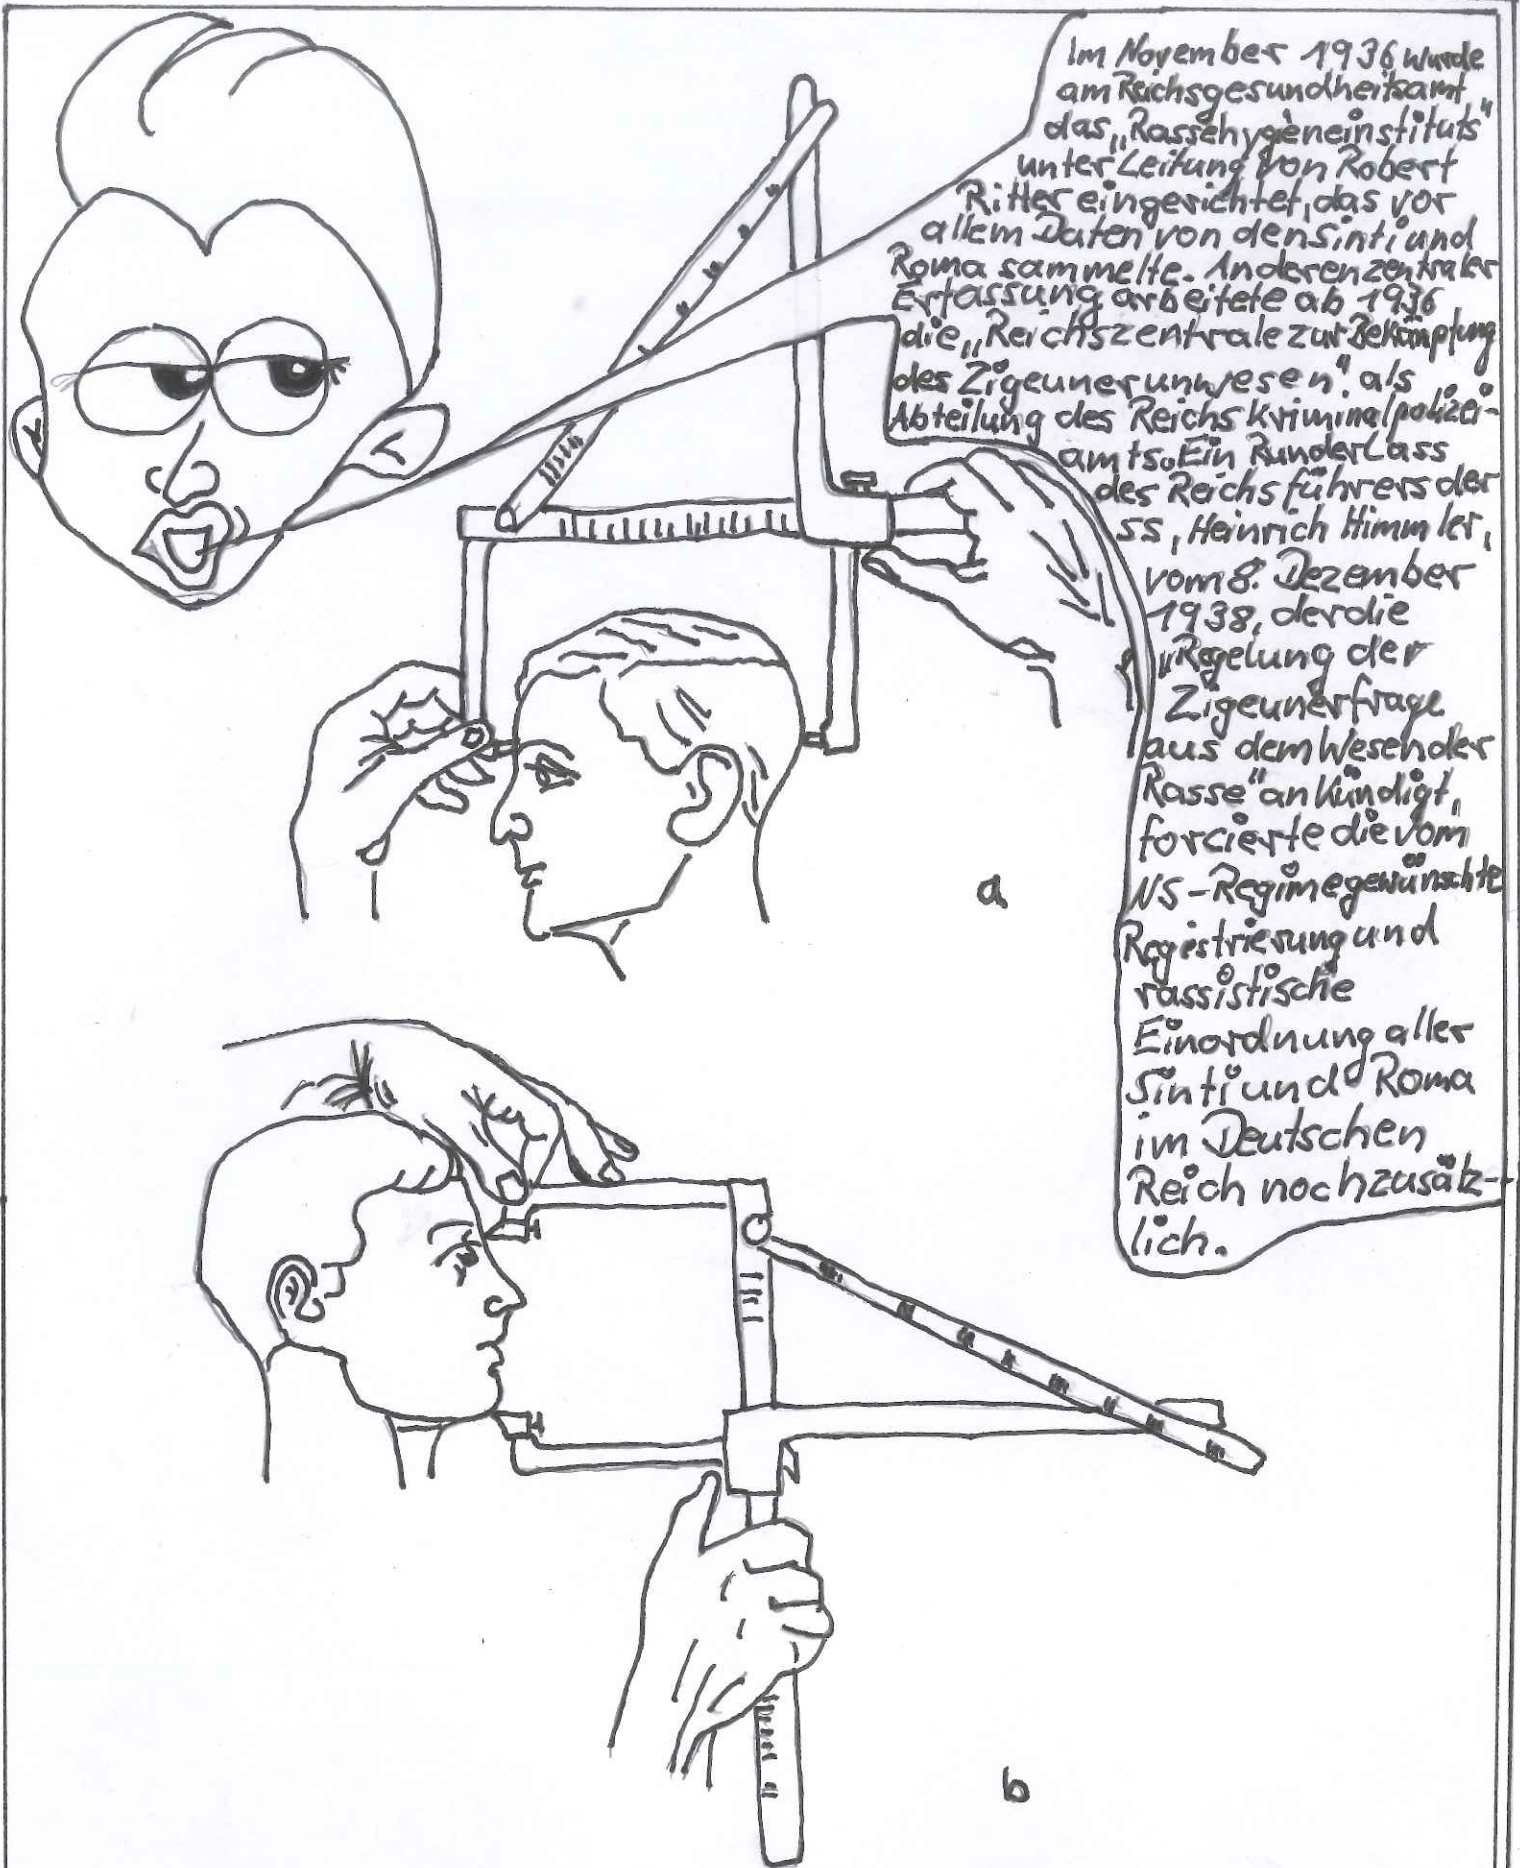 Im November 1936 wurde
am Reichsgesundheitsamt
das „Rassehygieneinstituts"
unter Leitung von Robert
Ritter eingerichtet, das vor
allem Daten von den Sinti und
Roma sammelte. An deren zentraler
Erfassung arbeitete ab 1936
die „Reichszentrale zur Bekämpfung
des Zigeunerunwesen" als
Abteilung des Reichskriminalpolizei-
amts. Ein Runderlass
des Reichsführers der
SS, Heinrich Himmler,
vom 8. Dezember
1938, der die
„Regelung der
Zigeunerfrage
aus dem Wesen der
Rasse" ankündigt,
forcierte die vom
NS-Regime gewünschte
Registrierung und
rassistische
Einordnung aller
Sinti und Roma
im Deutschen
Reich noch zusätz-
lich.
a
b